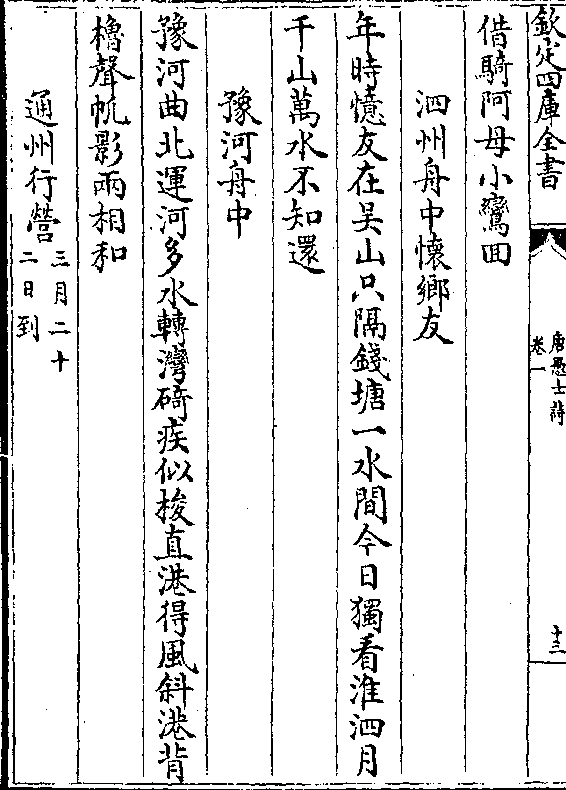 欽定四庫全書
唐愚士詩
卷一
十三
借騎阿母小鸞回
泗州舟中懷鄉友
年時憶友在吴山只隔錢塘一水間今日獨看淮泗月
千山萬水不知還
豫河舟中
豫河曲北運河多水轉灣碕疾似梭直港得風斜港背
櫓聲帆影兩相和
通州行營三月二十
二日到